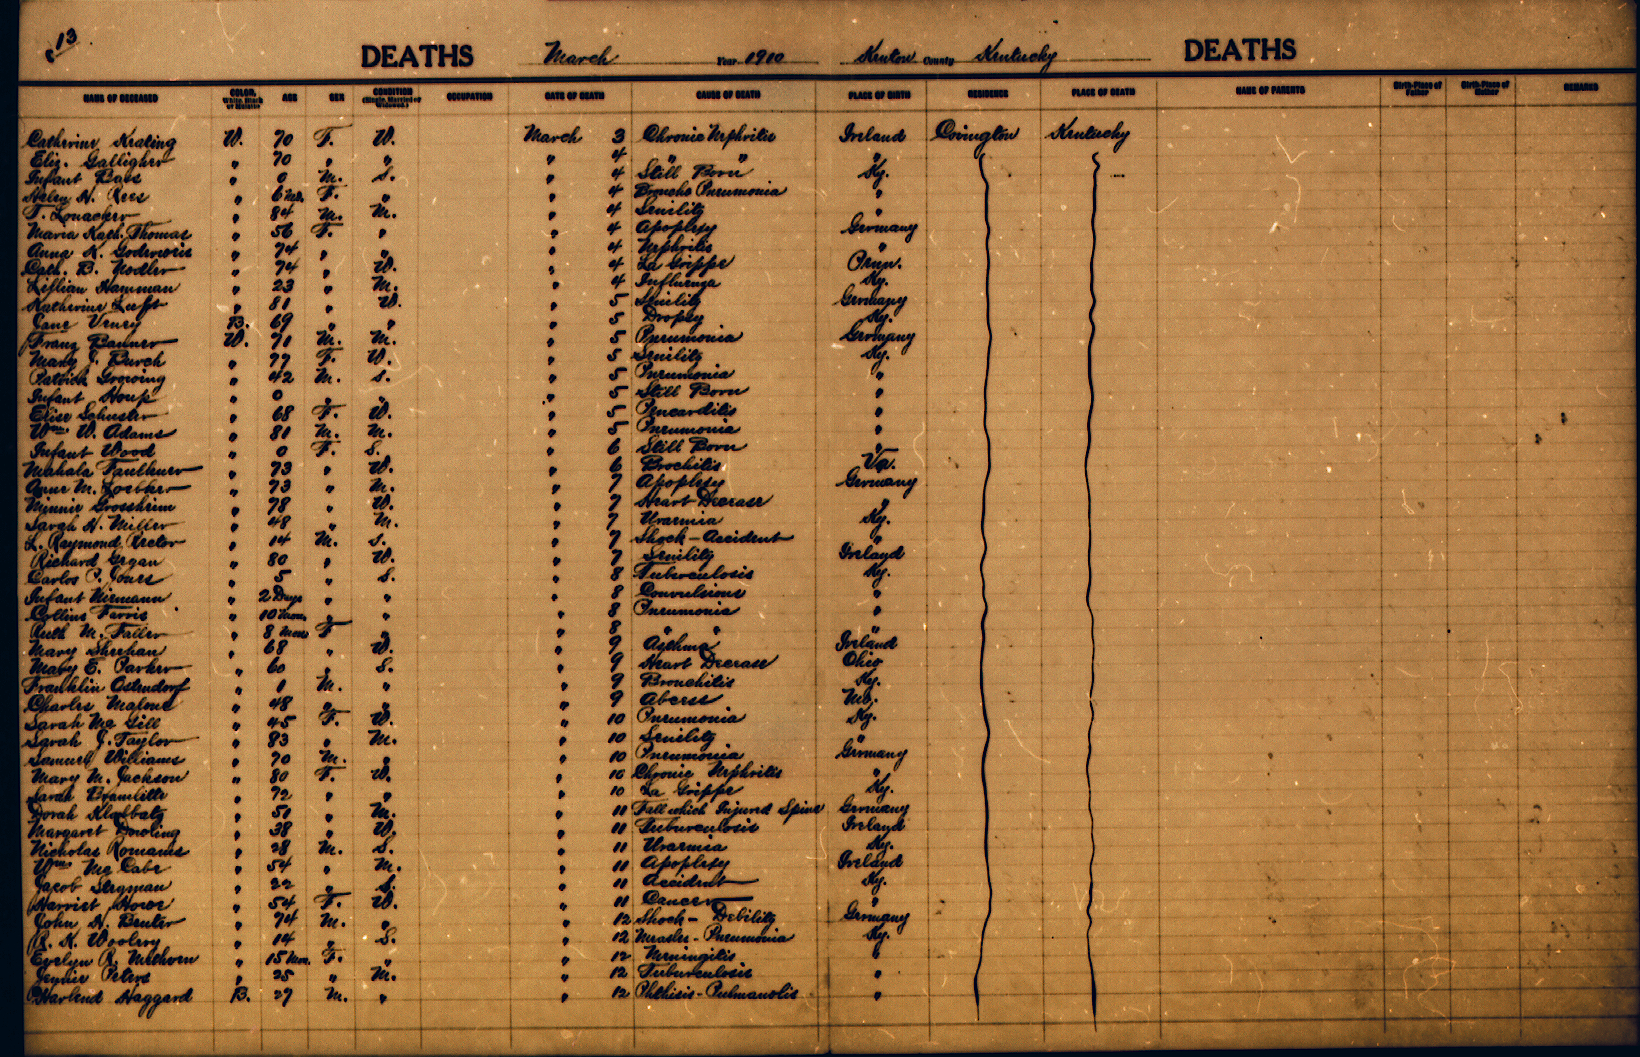 13
DEATHS March Year 1910 Kenton County Kentucky DEATHS
NAME OF DECEASED COLOR, White, Black or Mulatto AGE SEX CONDITION (Single, Married or Widowed.) OCCUPATION DATE OF DEATH CAUSE OF DEATH PLACE OF BIRTH RESIDENCE PLACE OF DEATH NAME OF PARENTS Birth-Place of Father Birth-Place of Mother REMARKS
Catherine Keating W. 70 F. W. March 3 Chronic Nephritis Ireland Covington Kentucky
Eliz. Galligher " 70 " " " 4 " " "
Infant Baes " 0 M. S. " 4 Still Born Ky.
Helen H. Rees " 6 mo. F. " " 4 Broncho Pneumonia "
F. Lonacker " 84 M. M. " 4 Senility "
Maria Kath. Thomas " 56 F. " " 4 Apoplexy Germany
Anna K. " 74 " " " 4 Nephritis "
Cath. B. Nodler " 74 " W. " 4 La Grippe
Lillian Hamman " 23 " M. " 4 Influenza Ky.
Katherine " 81 " W. " 5 Senility Germany
Jane Venry B. 69 " " " 5 Dropsy Ky.
Franz Banner W. 71 M. M. " 5 Pneumonia Germany
Mary J. Burch " 77 F. W. " 5 Senility Ky.
Patrick Growing " 42 M. S. " 5 Pneumonia "
Infant Houp " 0 " " " 5 Still Born "
Elise Schuster " 68 F. W. " 5 "
Wm. W. Adams " 81 M. M. " 5 Pneumonia "
Infant Wood " 0 F. S. " 6 Still Born "
Mahala Faulkner " 73 " W. " 6 Brochitis Va.
Anne M. Loebker " 73 " M. " 7 Apoplexy Germany
Minnie Grossheim " 78 " W. " 7 Heart Decease "
Sarah H. Miller " 48 " M. " 7 Uraemia Ky.
L. Raymond Rector " 14 M. S. " 7 Shock - Accident "
Richard Gegan " 80 " W. " 7 Senility Ireland
Carlos P. Jones " 5 " S. " 8 Tuberculosis Ky.
Infant Niemann " 2 Days " " " 8 Convulsions "
Collins Farris " 10 mon. " " " 8 Pneumonia "
Ruth M. Faller " 8 mons F " " 8 " " "
Mary Sheehan " 68 " W. " 9 Asthma Ireland
Mary E. Parker " 60 " S. " 9 Heart Decease Ohio
Franklin Ostendorf " 1 M. " " 9 Bronchitis Ky.
Charles Malone " 48 " " " 9 Abcess Mo.
Sarah Mc Gill " 45 F. W. " 10 Pneumonia Ky.
Sarah J. Taylor " 83 " M. " 10 Senility "
Samuel Williams " 70 M. " " 10 Pneumonia Germany
Mary M. Jackson " 80 F. W. " 10 Chronic Nephritis "
Sarah Bramlette " 72 " " " 10 La Grippe Ky.
Dorah " 51 " M. " 11 Fall which Injured Spine Germany
Margaret Dowling " 38 " W. " 11 Tuburculosis Ireland
Nicholas Romans " 28 M. S. " 11 Uraemia Ky.
Wm. Mc Cabe " 54 " M. " 11 Apoplexy Ireland
Jacob Stegman " 22 " S. " 11 Accident Ky.
Harriet Howe " 54 F. W. " 11 Cancer "
John H. Benter " 74 M. " " 12 Shock - Debility Germany
R. K. Woolery " 14 " S. " 12 Measles - Pneumonia Ky.
Evelyn R. Methven " 15 mon. F. " " 12 Meningitis "
Jennie Peters " 25 " M. " 12 Tuburculosis "
Harlend Haggard B. 27 M. " " 12 Phthisis - Pulmanolis "